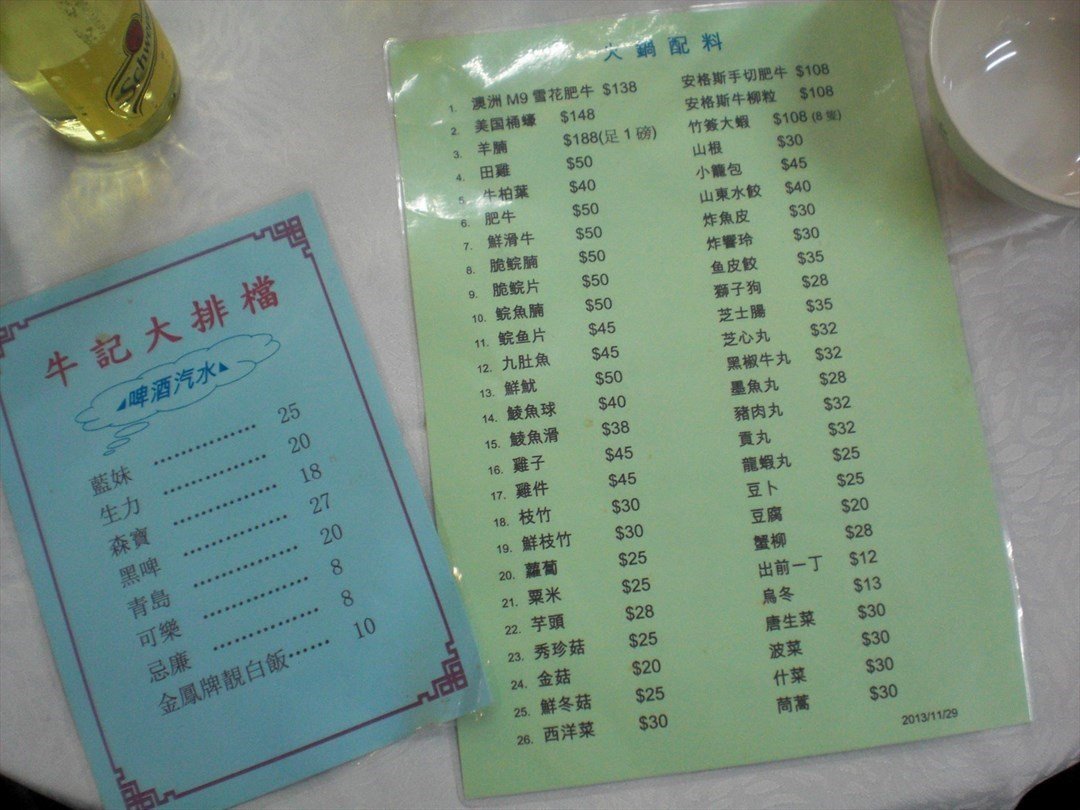 Schweppes
牛記大排檔
啤酒汽水
藍妹 ………… 25
生力 ………… 20
森寶 ………… 18
黑啤 ………… 27
青島 ………… 20
可樂 ………… 8
忌廉 ………… 8
金鳳牌靚白飯…… 10
火鍋配料
1. 澳洲 M9 雪花肥牛 $138 安格斯手切肥牛 $108
2. 美国桶蠔 $148 安格斯牛柳粒 $108
3. 羊腩 $188(足 1 磅) 竹簽大蝦 $108 (8 隻)
4. 田雞 $50 山根 $30
5. 牛柏葉 $40 小籠包 $45
6. 肥牛 $50 山東水餃 $40
7. 鮮滑牛 $50 炸魚皮 $30
8. 脆鯇腩 $50 炸響玲 $30
9. 脆鯇片 $50 鱼皮餃 $35
10. 鯇魚腩 $50 獅子狗 $28
11. 鯇鱼片 $45 芝士腸 $35
12. 九肚魚 $45 芝心丸 $32
13. 鮮魷 $50 黑椒牛丸 $32
14. 鯪魚球 $40 墨魚丸 $28
15. 鯪魚滑 $38 豬肉丸 $32
16. 雞子 $45 貢丸 $32
17. 雞件 $45 龍蝦丸 $25
18. 枝竹 $30 豆卜 $25
19. 鮮枝竹 $30 豆腐 $20
20. 蘿蔔 $25 蟹柳 $28
21. 粟米 $25 出前一丁 $12
22. 芋頭 $28 烏冬 $13
23. 秀珍菇 $25 唐生菜 $30
24. 金菇 $20 波菜 $30
25. 鮮冬菇 $25 什菜 $30
26. 西洋菜 $30 茼蒿 $30
2013/11/29